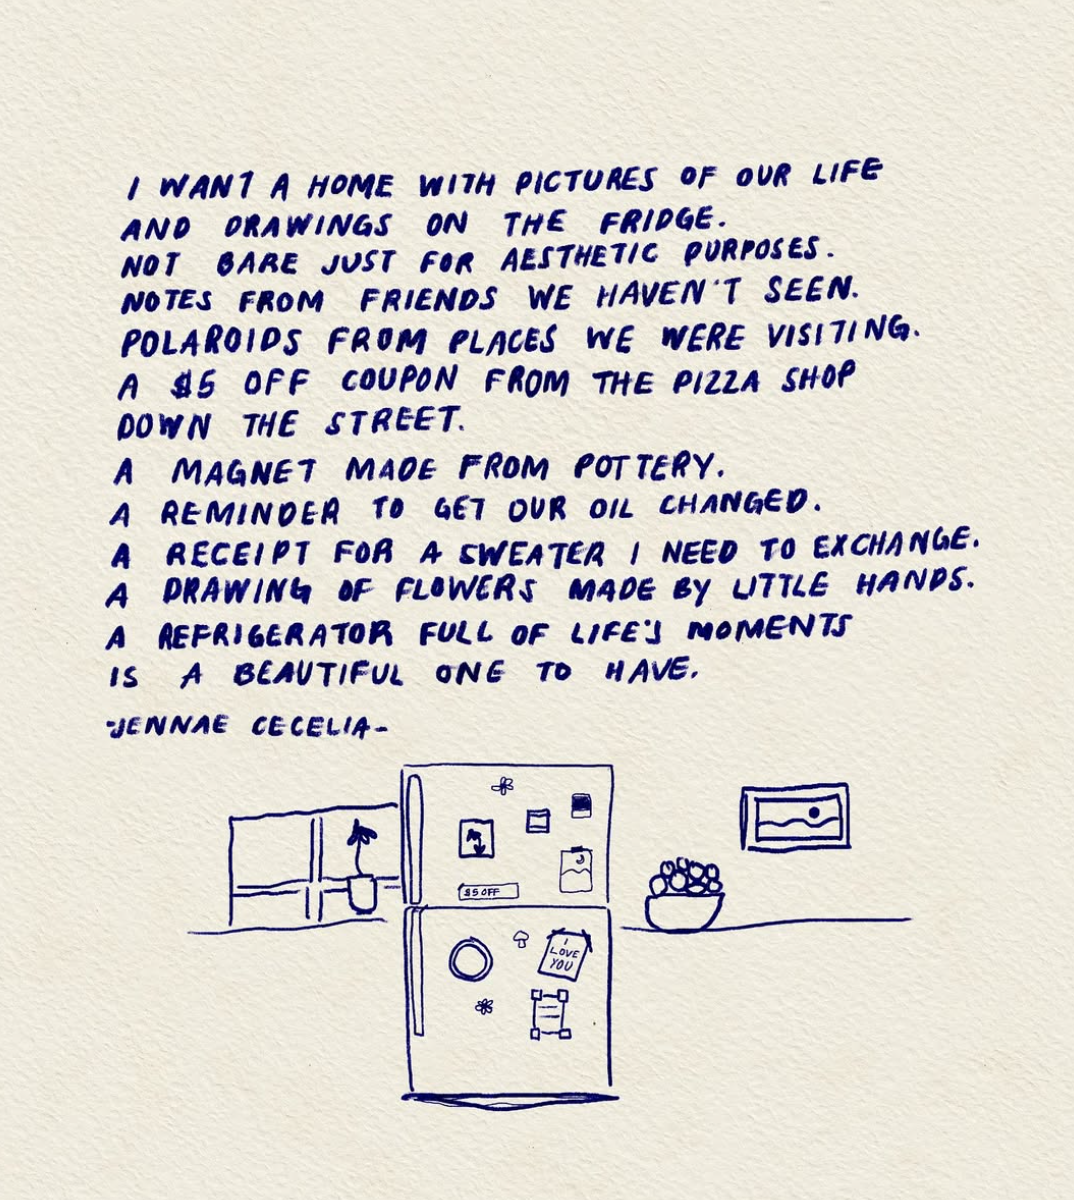 I WANT A HOME WITH PICTURES OF OUR LIFE
AND DRAWINGS ON THE FRIDGE.
NOT BARE JUST FOR AESTHETIC PURPOSES.
NOTES FROM FRIENDS WE HAVEN'T SEEN.
POLAROIDS FROM PLACES WE WERE VISITING.
A $5 OFF COUPON FROM THE PIZZA SHOP
DOWN THE STREET.
A MAGNET MADE FROM POTTERY.
A REMINDER TO GET OUR OIL CHANGED.
A RECEIPT FOR A SWEATER I NEED TO EXCHANGE.
A DRAWING OF FLOWERS MADE BY LITTLE HANDS.
A REFRIGERATOR FULL OF LIFE'S MOMENTS
IS A BEAUTIFUL ONE TO HAVE.
-JENNAE CECELIA-
$5 OFF
I
LOVE
YOU